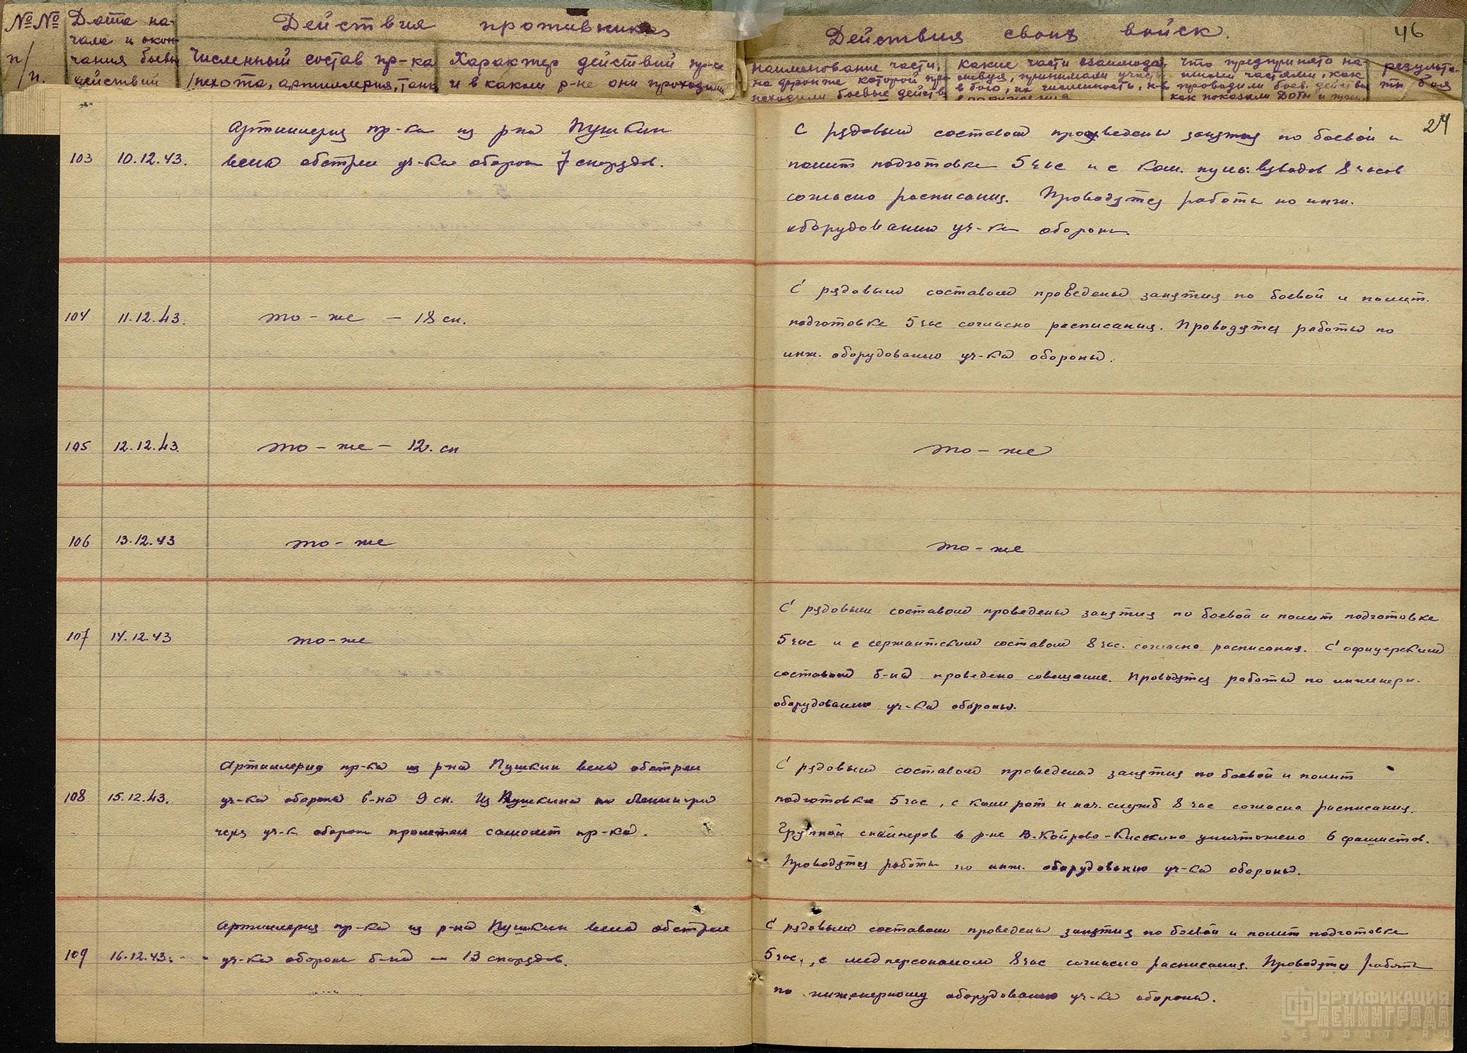 №№ п/п.
Дата на-
чала и окон-
чания боевы
действий
Действия противника
Численный состав пр-ка
/пехота, артиллерия, танк
Характер действий пр-ка
и в каком р-не они проходили
Действия своих войск.
46
наименование части,
на фронте которой про
исходили боевые действ
какие части взаимодей
ствуя, принимали участ
в бою, их численность, и в
вооружения
что предпринято на-
шими частями, как
проводили боев. действ
как показали ДОТы и
результа-
ты боя
24
103
10.12.43.
Артиллерия пр-ка из р-на Пушкин
вела обстрел уч-ка оборон 7 снарядов.
С рядовым составом проведены занятия по боевой и
полит подготовке 5 час и с ком. пуль. взводов 8 часов
согласно расписания. Проводятся работы по инж.
оборудованию уч-ка обороны.
104
11.12.43.
то-же — 18 сн.
С рядовым составом проведены занятия по боевой и полит.
подготовке 5 час согласно расписания. Проводятся работы по
инж. оборудованию уч-ка обороны.
105
12.12.43.
то-же — 12. сн
то-же
106
13.12.43
то-же
то-же
107
14.12.43
то-же
С рядовым составом проведены занятия по боевой и полит подготовке
5 час и с сержантским составом 8 час. согласно расписания. С офицерским
составом б-на проведено совещание. Проводятся работы по инженерн.
оборудованию уч-ка обороны.
108
15.12.43.
Артиллерия пр-ка из р-на Пушкин вела обстрел
уч-ка обороны б-на 9 сн. Из Пушкина на Ленингра
через уч-к оборон пролетел самолет пр-ка.
С рядовым составом проведены занятия по боевой и полит
подготовке 5 час, с ком рот и нач. служб 8 час согласно расписания.
Группой снайперов в р-не В.Койрово-Кискино уничтожено 6 фашистов.
Проводятся работы по инж. оборудованию уч-ка обороны.
109
16.12.43.
Артиллерия пр-ка из р-на Пушкин вела обстрел
уч-ка обороны б-на — 13 снарядов.
С рядовым составом проведены занятия по боевой и полит подготовке
5 час., с мед персоналом 8 час согласно расписания. Проводятся работы
по инженерному оборудованию уч-ка обороны.
ФОРТИФИКАЦИЯ
ЛЕНИНГРАДА